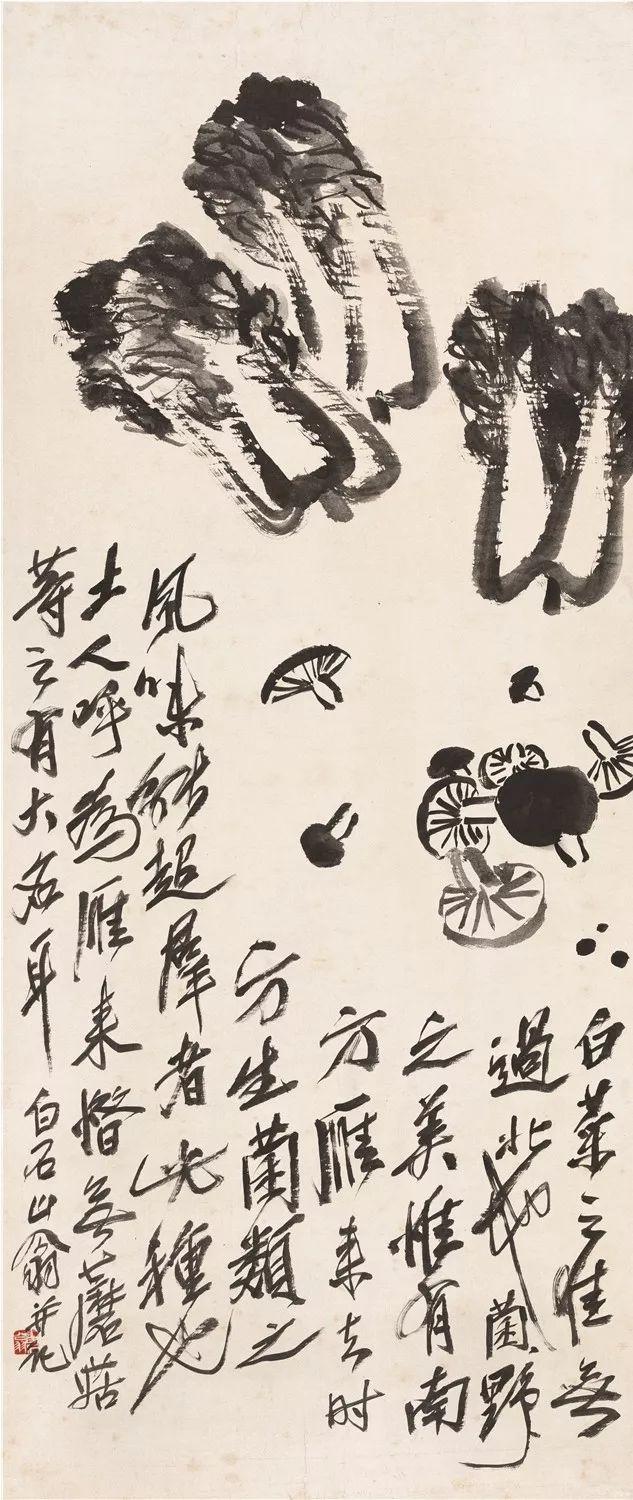 白菜之佳無
過北地菌野
之美惟有南
方雁来去时
方生菌類之
風味能超羣者此種也
土人呼為雁来無蘑菇
等之有大名耳
白石山翁并记